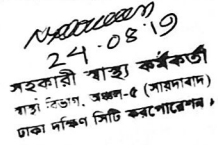 24.08.19
সহকারী স্বাস্থ্য কর্মকর্তা
স্বাস্থ্য বিভাগ, অঞ্চল-৫ (সায়দাবাদ)
ঢাকা দক্ষিণ সিটি করপোরেশন।